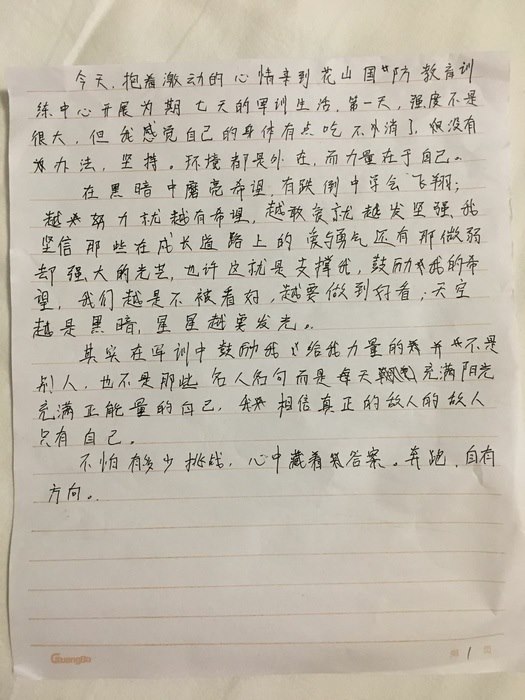 今天,抱着激动的心情来到花山国防教育训
练中心开展为期七天的军训生活,第一天,强度不是
很大,但我感觉自己的身体有点吃不外消了,但没有
办法,坚持。环境都是外在,而力量在于自己。
在黑暗中磨亮希望,有跌倒中学会飞翔;
越努力就越有希望,越敢变就越发坚强,我
坚信那些在成长道路上的爱与勇气还有那微弱
却强大的光芒,也许这就是支撑我,鼓励我的希
望,我们越是不被看好,越要做到好看;天空
越是黑暗,星星越要发光。
其实在军训中鼓励我给我力量的并不是
别人,也不是那些名人名句而是每天充满阳光
充满正能量的自己,我相信真正的敌人的敌人
只有自己。
不怕有多少挑战,心中藏着答案。奔跑,自有
方向。
GuangBo
第1页